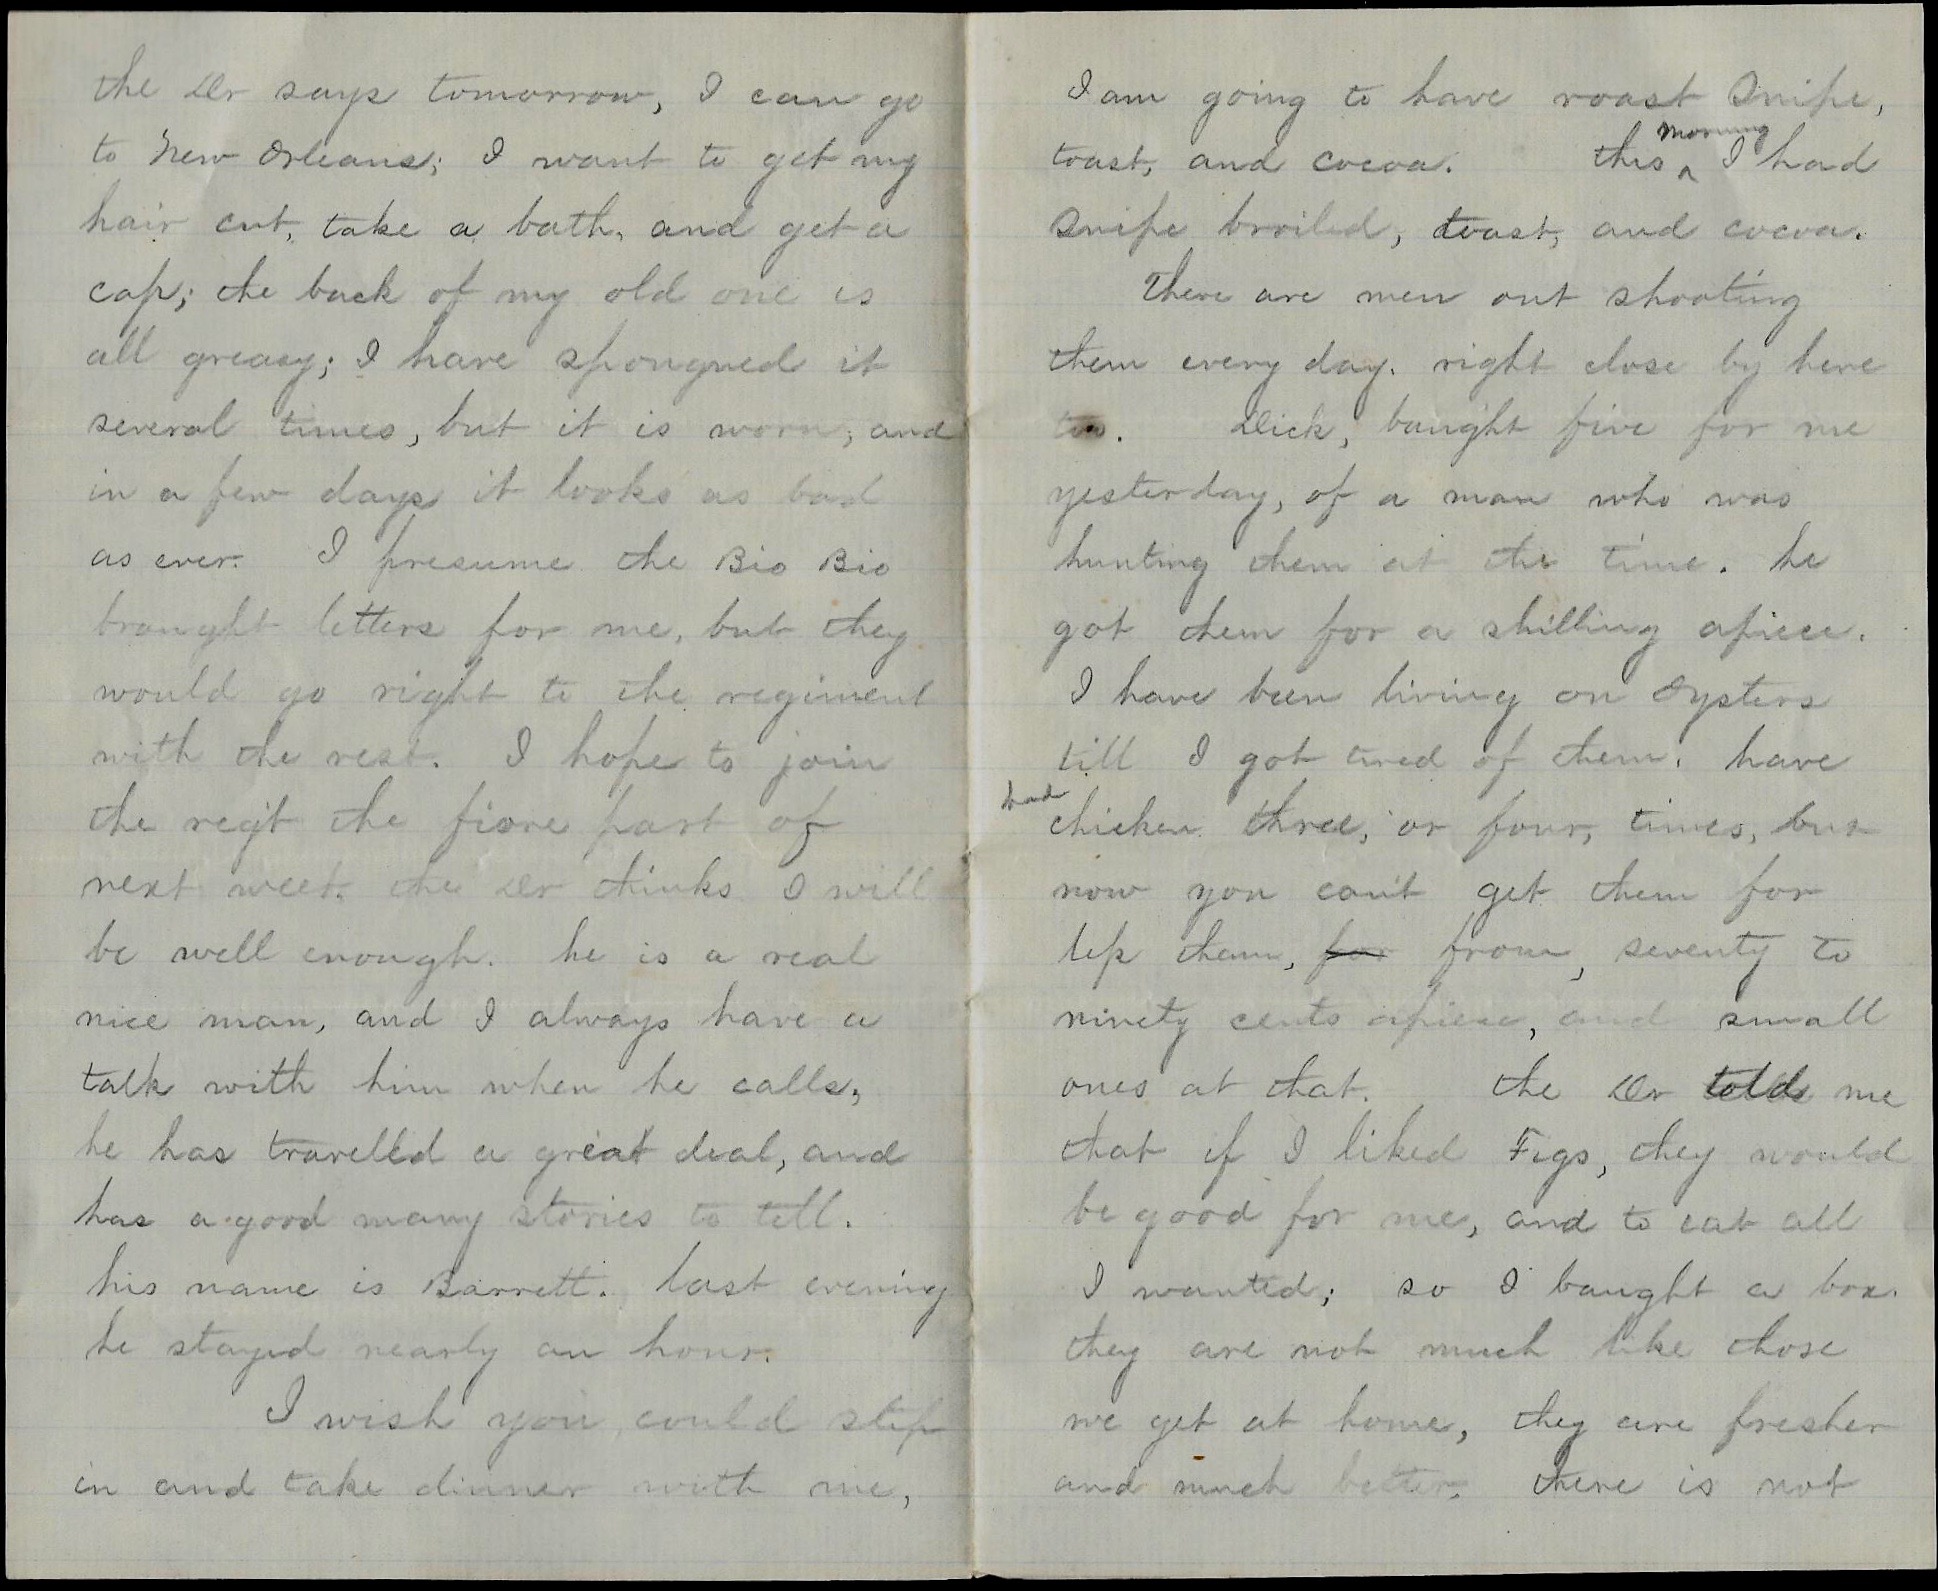 the Dr says tomorrow, I can go
to New Orleans; I want to get my
hair cut, take a bath, and get a
cap; the back of my old one is
all greasy; I have spongned it
several times, but it is worn, and
in a few days it looks as bad
as ever. I presume the Bio Bio
brought letters for me, but they
would go right to the regiment
with the rest. I hope to join
the reg't the fiore part of
next week. the Dr thinks I will
be well enough. he is a real
nice man, and I always have a
talk with him when he calls,
he has travelled a great deal, and
has a good many stories to tell.
his name is Barrett. last evening
he stayed nearly an hour.
I wish you could step
in and take dinner with me,
I am going to have roast Snipe,
toast, and cocoa. this ^morning I had
Snipe broiled, toast, and cocoa.
There are men out shooting
them every day. right close by here
too. Dick, baught five for me
yesterday, of a man who was
hunting them at the time. he
got them for a shilling apiece.
I have been living on Oysters
till I got tired of them. have
had
chicken three, or four, times, but
now you can't get them for
less than, for from, seventy to
ninety cents apiece, and small
ones at that. the Dr told me
that if I liked Figs, they would
be good for me, and to eat all
I wanted; so I baught a box.
they are not much like those
we get at home, they are fresher
and much better. there is not